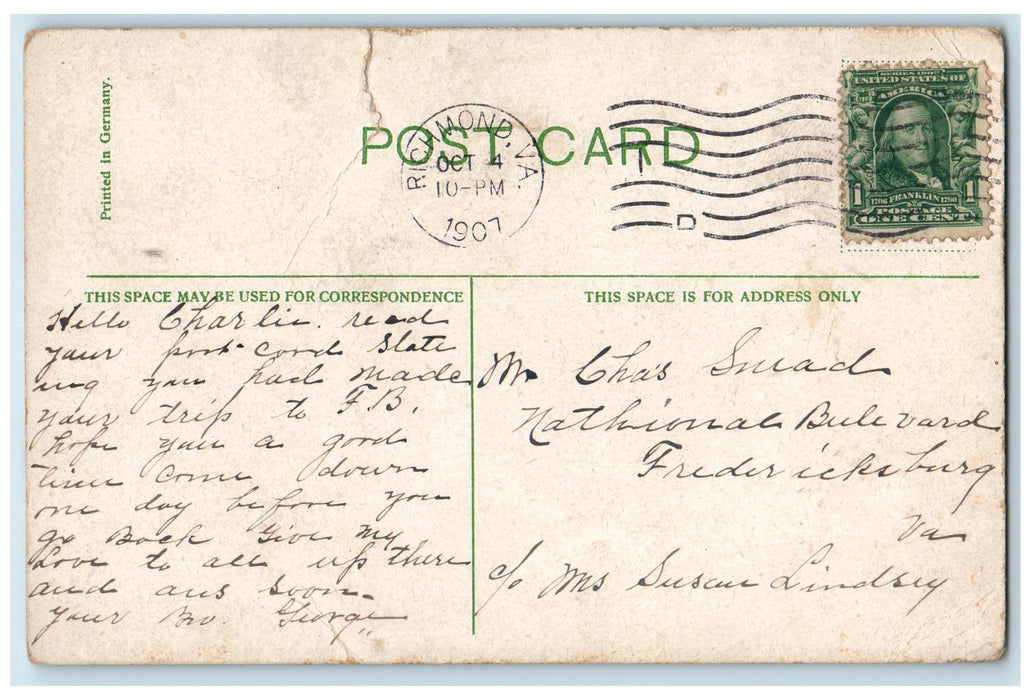 Printed in Germany.
POST CARD
RICHMOND, VA.
OCT 4
10-PM
1907
D
SERIES 1902
UNITED STATES OF
AMERICA
1 1
1706 FRANKLIN 1790
POSTAGE
ONE CENT
THIS SPACE MAY BE USED FOR CORRESPONDENCE
Hello Charlie. read
your post cord State
ing you had made
your trip to F.B.
hope you a good
time come down
one day before you
go Back Give My
Love to all up there
and ans soon.
your Bro. George
THIS SPACE IS FOR ADDRESS ONLY
Mr Chas Smad
Nathional Bulevard
Fredericksburg
Va
c/o Mrs Susan Lindsey